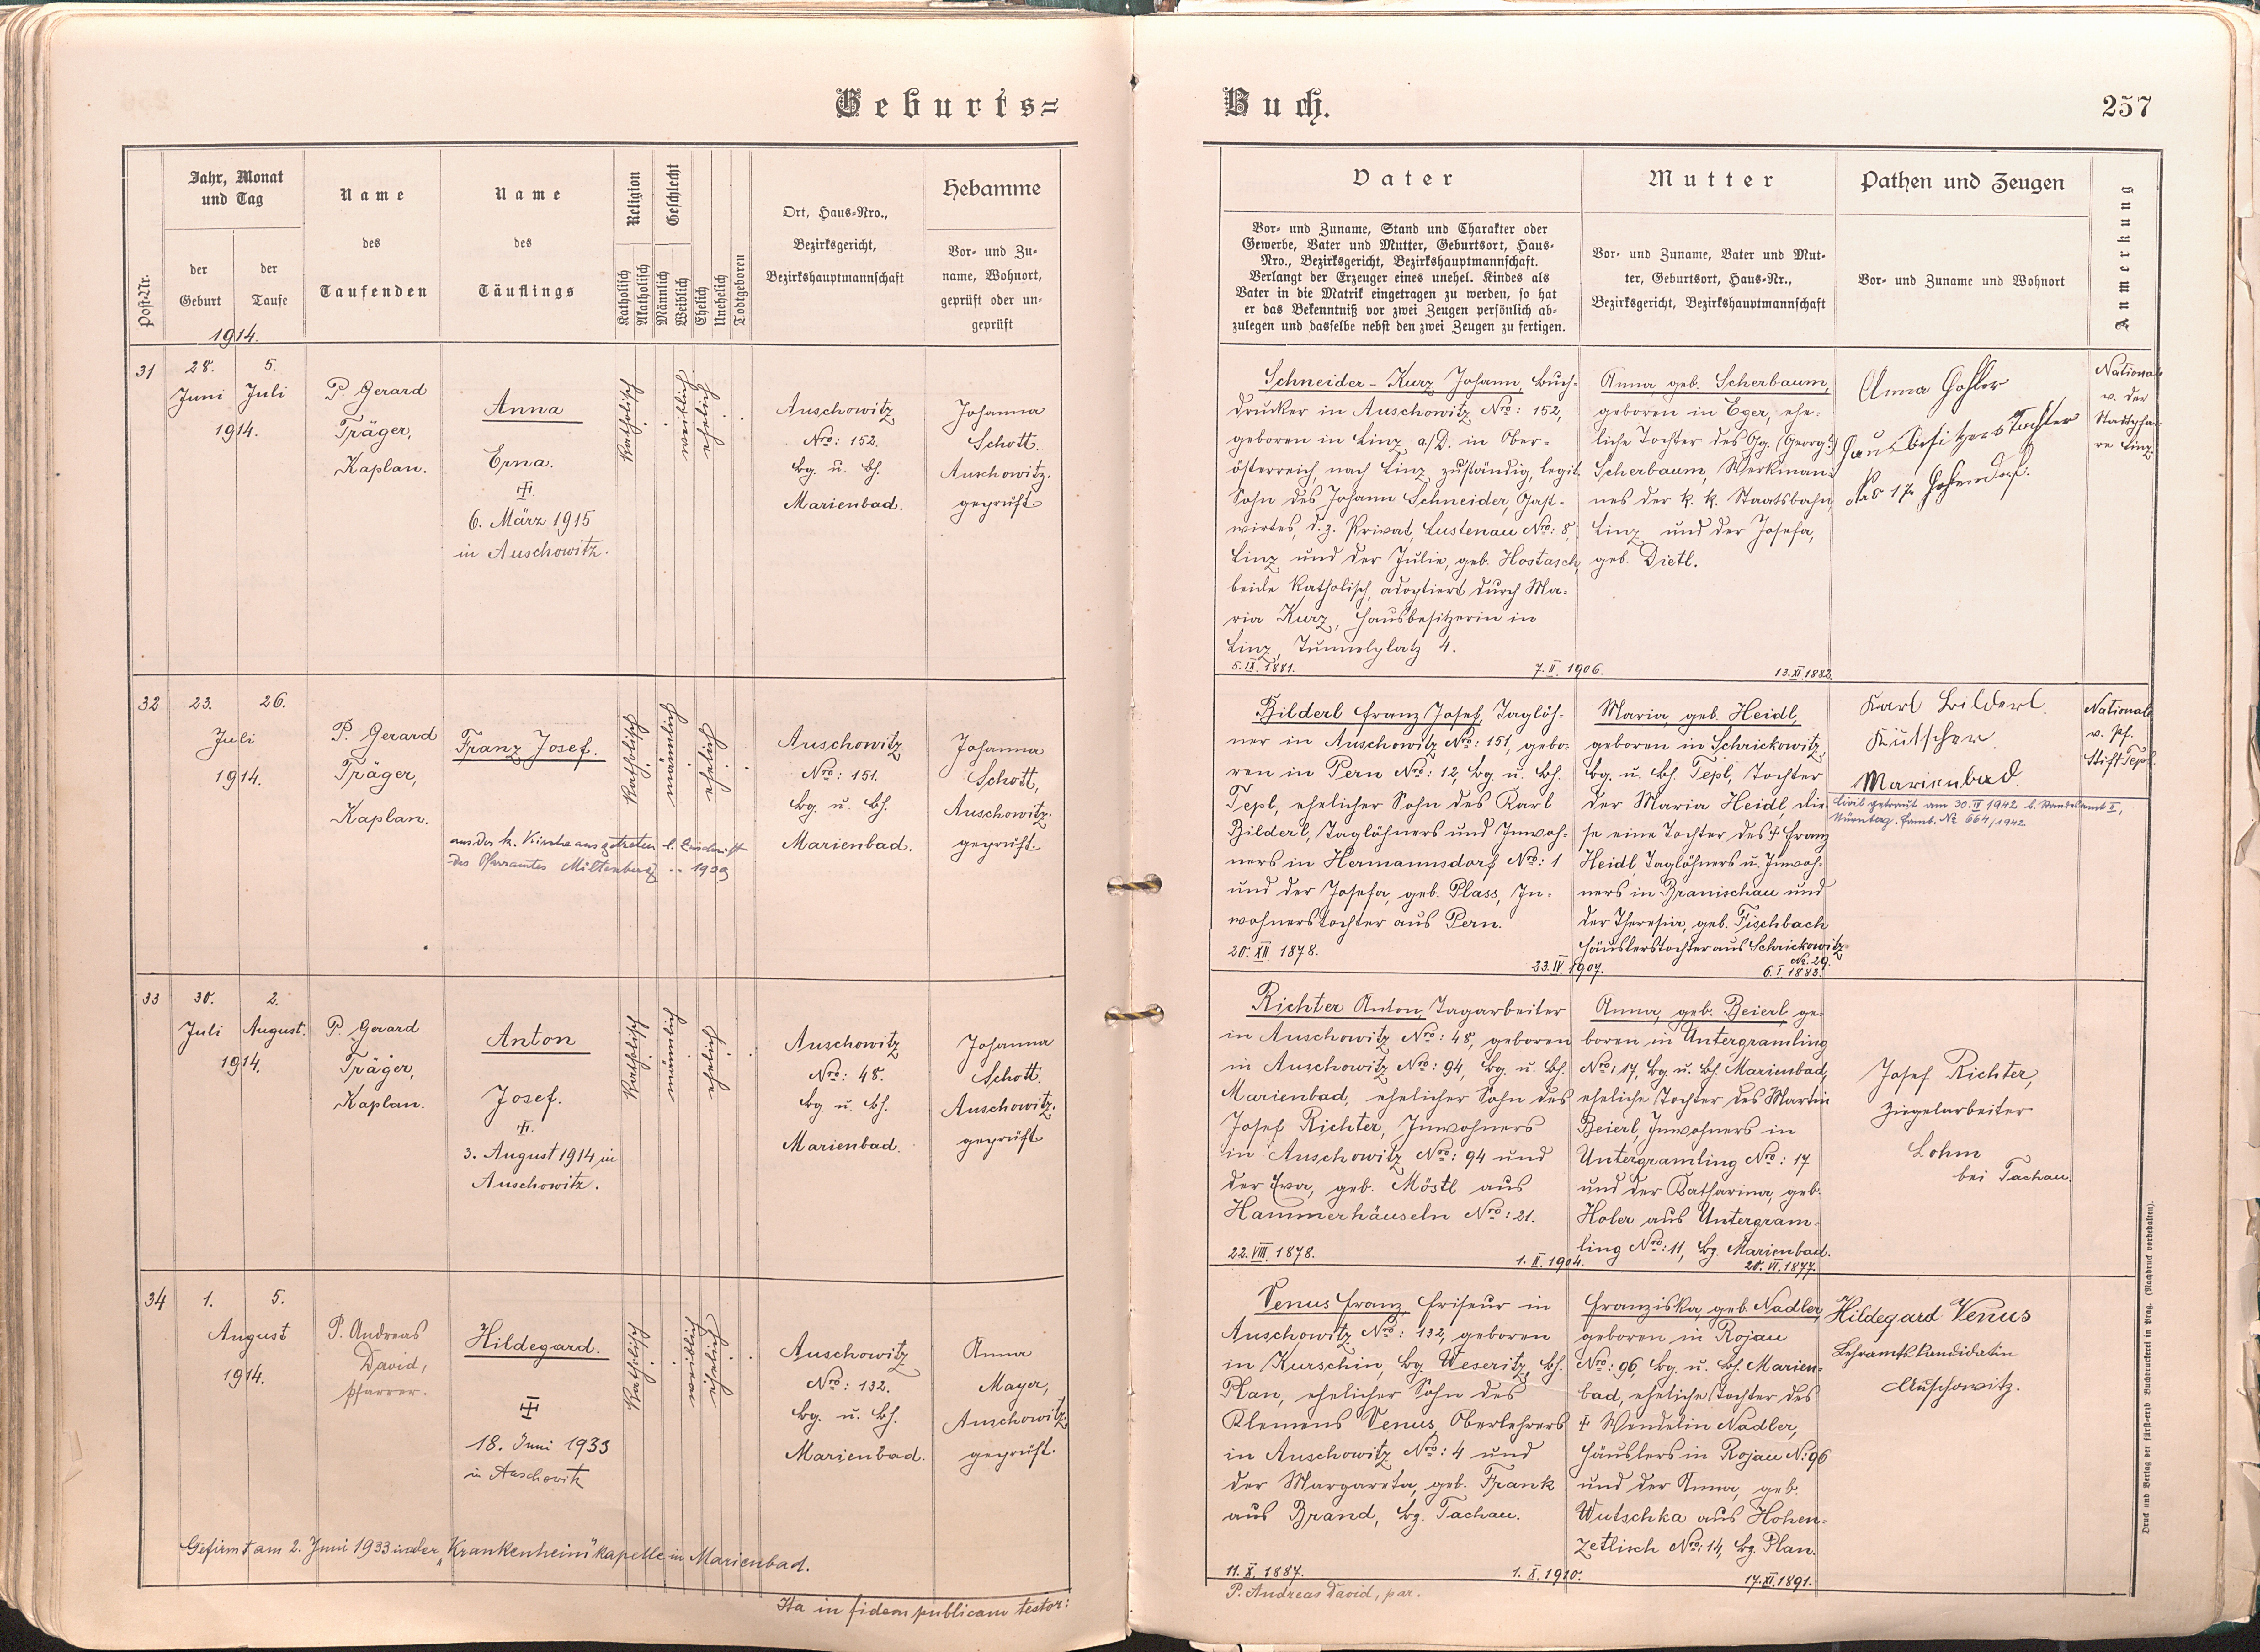 Geburts=
Buch.
257
Post-Nr.
Jahr, Monat
und Tag
der
Geburt
der
Taufe
Name
des
Taufenden
Name
des
Täuflings
Religion
Katholisch
Akatholisch
Geschlecht
Männlich
Weiblich
Ehelich
Unehelich
Todtgeboren
Ort, Haus-Nro.,
Bezirksgericht,
Bezirkshauptmannschaft
Hebamme
Vor- und Zu-
name, Wohnort,
geprüft oder un-
geprüft
Vater
Vor- und Zuname, Stand und Charakter oder
Gewerbe, Vater und Mutter, Geburtsort, Haus-
Nro., Bezirksgericht, Bezirkshauptmannschaft.
Verlangt der Erzeuger eines unehel. Kindes als
Vater in die Matrik eingetragen zu werden, so hat
er das Bekenntniß vor zwei Zeugen persönlich ab-
zulegen und dasselbe nebst den zwei Zeugen zu fertigen.
Mutter
Vor- und Zuname, Vater und Mut-
ter, Geburtsort, Haus-Nr.,
Bezirksgericht, Bezirkshauptmannschaft
Pathen und Zeugen
Vor- und Zuname und Wohnort
Anmerkung
1914.
31
28.
Juni
5.
Juli
1914.
P. Gerard
Träger,
Kaplan.
Anna
Erna.
6. März 1915
in Auschowitz.
Katholisch
weiblich
ehelich
Auschowitz
Nro: 152.
Bg. u. Bh.
Marienbad.
Johanna
Schott.
Auschowitz.
geprüft
Schneider - Kurz Johann, Buch-
drucker in Auschowitz Nro: 152,
geboren in Linz a/D. in Ober-
österreich, nach Linz zuständig, legit.
Sohn des Johann Schneider, Gast-
wirtes, d. z. Privat, Lustenau Nro: 8,
Linz und der Julie, geb. Hostasch,
beide katholisch, adoptiert durch Ma-
ria Kurz, Hausbesitzerin in
Linz, Tummelplatz 4.
5. IX. 1881.
7. II. 1906.
Anna, geb. Scherbaum,
geboren in Eger, ehe-
liche Tochter des Gg. (Georg)
Scherbaum, Werkman-
nes der k. k. Staatsbahn,
Linz und der Josefa,
geb. Dietl.
13. XI. 1882.
Anna
Hausbesitzers Tochter
Nationale
v. der
Stadtpfar-
re Linz.
32
23.
26.
Juli
1914.
P. Gerard
Träger,
Kaplan.
Franz Josef.
aus der k. Kirche ausgetreten l. Zuschrift
des Pfarramtes Miltenberg 1939
Katholisch
männlich
ehelich
Auschowitz
Nro: 151.
Bg. u. Bh.
Marienbad.
Johanna
Schott,
Auschowitz.
geprüft
Bilderl Franz Josef, Taglöh-
ner in Auschowitz Nro: 151, gebo-
ren in Pern Nro: 12, Bg. u. Bh.
Tepl, ehelicher Sohn des Karl
Bilderl, Taglöhners und Inwoh-
ners in Hermannsdorf Nro: 1
und der Josefa, geb. Plass, In-
wohnerstochter aus Pern.
20. XII. 1878.
23. IV. 1907.
Maria, geb. Heidl,
geboren in Schrickowitz,
Bg. u. Bh. Tepl, Tochter
der Maria Heidl, die-
se eine Tochter des † Franz
Heidl, Taglöhners u. Inwoh-
ners in Branischau und
der Theresia, geb. Fischbach
Häuslerstochter aus Schrickowitz
No. 29.
6. I. 1883.
Karl Bilderl
Kutscher
Marienbad.
Civil getraut am 30. 1942 b. Standesamt I,
Nürnberg. Famb. No 664/1942
Nationale
v. Pf.
Stift Tepl.
33
30.
Juli
2.
August.
1914.
P. Gerard
Träger,
Kaplan.
Anton
Josef.
3. August 1914 in
Auschowitz.
Katholisch
männlich
ehelich
Auschowitz
Nro: 48.
Bg u. Bh.
Marienbad.
Johanna
Schott.
Auschowitz.
geprüft
Richter Anton, Tagarbeiter
in Auschowitz Nro: 48, geboren
in Auschowitz Nro: 94, Bg. u. Bh.
Marienbad, ehelicher Sohn des
Josef Richter, Inwohners
in Auschowitz Nro: 94 und
der Eva, geb. Möstl aus
Hammerhäuseln Nro: 21.
22. VIII. 1878.
1. II. 1904.
Anna, geb. Beierl ge-
boren in Untergramling
Nro: 17, Bg. u. Bh. Marienbad,
eheliche Tochter des Martin
Beierl, Inwohners in
Untergramling Nro: 17
und der Katharina, geb.
Holer aus Untergram-
ling Nro: 11, Bg. Marienbad.
20. VI. 1877.
Josef Richter,
Ziegelarbeiter
Lohm
bei Tachau.
34
1.
5.
August
1914.
P. Andreas
David,
Pfarrer.
Hildegard.
18. Juni 1933
in Auschowitz
Katholisch
weiblich
ehelich
Auschowitz
Nro: 132.
Bg. u. Bh.
Marienbad.
Anna
Mayer,
Auschowitz,
geprüft.
Gefirmt am 2. Juni 1933 in der "Krankenheim" kapelle in Marienbad.
Venus Franz, Friseur in
Auschowitz Nro: 132, geboren
in Kurschin, Bg. Weseritz, Bh.
Plan, ehelicher Sohn des
Klemens Venus, Oberlehrers
in Auschowitz Nro: 4 und
der Margareta, geb. Frank
aus Brand, Bg. Tachau.
11. X. 1887.
1. X. 1910.
Franziska, geb. Nadler,
geboren in Rojau
Nro: 96, Bg. u. Bh. Marien-
bad, eheliche Tochter des
† Wendelin Nadler,
Häuslers in Rojau No: 96
und der Anna, geb.
Wutschka aus Hohen-
zetlisch Nro: 14, Bg. Plan.
17. XI. 1891.
Hildegard Venus
Lehramtskandidatin
Auschowitz.
Ita in fidem publicam testor:
P. Andreas David, par.
Druck und Verlag der fürst-erzb. Buchdruckerei in Prag. (Nachdruck vorbehalten).